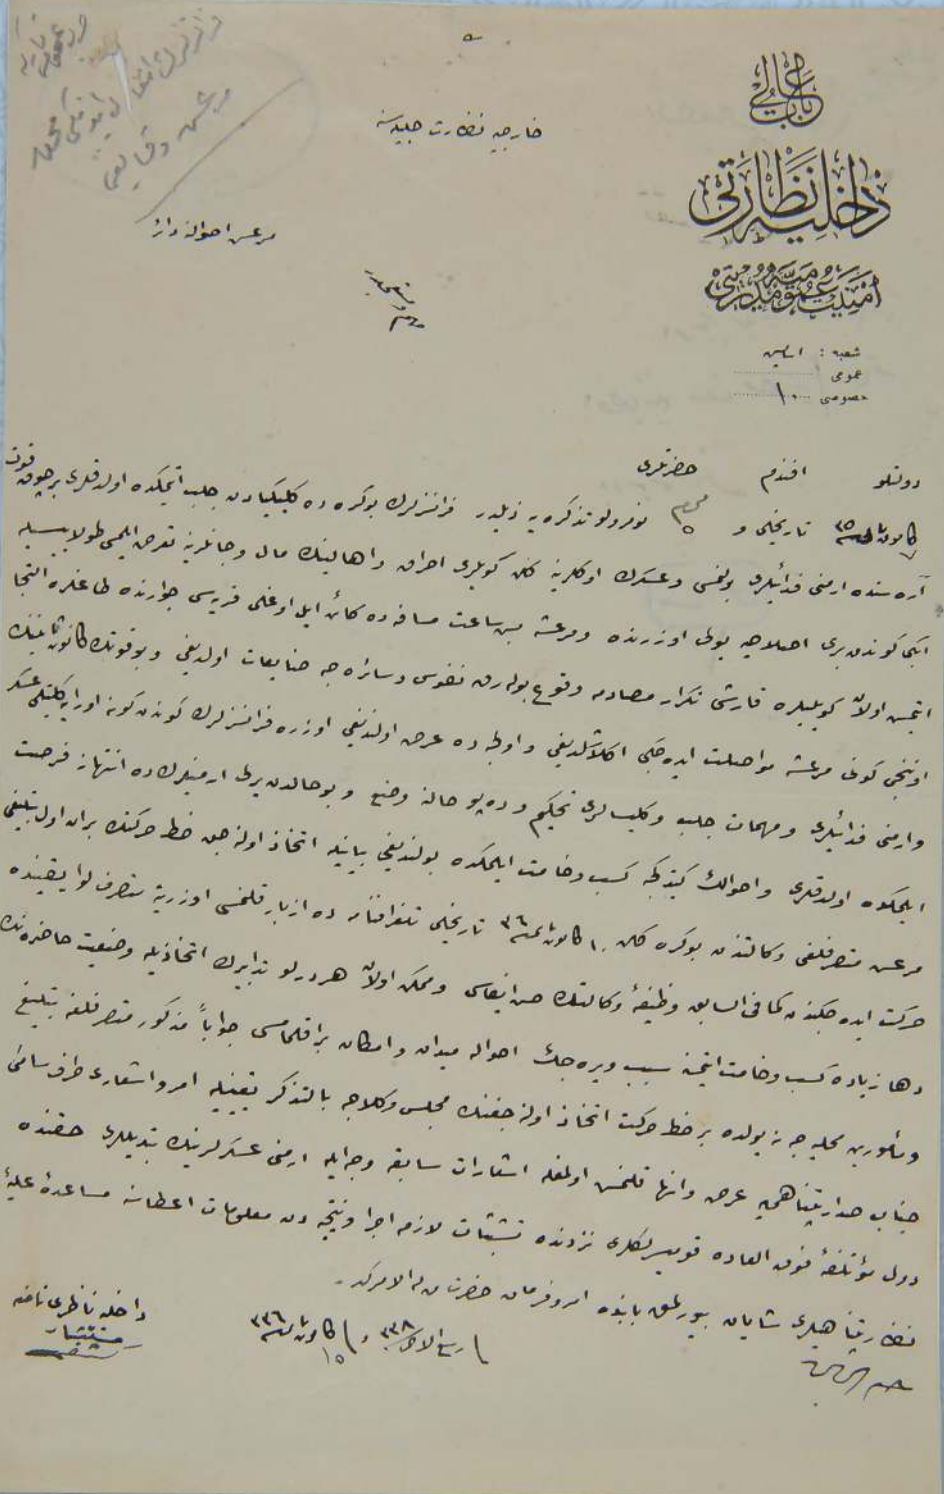 باب عالی
داخلیه نظارتی
امنیت عمومیه مدیریتی
شعبه :
عمومی
خصوصی ١٠
خارجیه نظارت جلیله سنه
مرعش احوالنه دائر
دولتلو افندم حضرتلری
تاریخلی و نومرولو تذکره یه ذیلدر فرانسزلرك بوکره ده کلیکیادن جلب ایتمکده اولدقلری بر چوق قوت
آره سنده ارمنی فدائیلری بولنمسی وعسکرك اوکلرینه کلن کویلری احراق و اهالینك مال و جانلرینه تعرض ایلمسی طولاییسیله
ایکی کوندن بری اصلاحیه یولی اوزرنده و مرعشه بش ساعت مسافه ده کائن ایل اوغلی قریه سی جوارنده طاغلره التجا
ایتمش اولان کویلیلره قارشی تکرار مصادمه وقوع بولەرق نفوس و سائره جه ضایعات اولدیغی و بو قوتك کانون ثانینك
اوننجی کونی مرعشه مواصلت ایده جکی اکلاشلدیغی و اولجه ده عرض اولندیغی اوزره فرانسزلرك کوندن کونه اورایه کلیتلی عسکر
وارمنی فدائیلری و مهمات جلب و کلیسالری تحکیم و ده پو حالنه وضع و بو حالدن یرلی ارمنیلرك ده انتهاز فرصت
ایلمکده اولدقلری و احوالك کیتدکجه کسب وخامت ایلمکده بولندیغی بیانیله اتخاذ اولنه جق خط حرکتك بر ان اول تبلیغی
مرعش متصرفلغی وکالتندن بوکره کلن ١٠ کانون ثانی ٣٦ تاریخلی تلغرافنامه ده ازبار قلنمسی اوزرینه متصرف لوا یقیننده
حرکت ایده جکندن کما فی السابق وظیفهٔ وکالتك حسن ایفاسی و ممکن اولان هر درلو تدابیرك اتخاذیله وضعیت حاضره نك
دها زیاده کسب وخامت ایتمسنه سبب ویره جك احواله میدان و امکان براقلمامسی جواباً مذکور متصرفلغه تبلیغ
و مأمورین محلیه جه نه یولده بر خط حرکت اتخاذ اولنه جغنك مجلس وکلاجه بالتذکر تعیینیله امر و اشعاری طرف سامی
جناب صدارتپناهی یه عرض و انها قلنمش اولمغله اشعارات سابقه وجهله ارمنی عسکرلرینك تبدیللری حقنده
دول مؤتلفهٔ فوق العاده قومیسرلکلری نزدنده تشبثات لازمه اجرا و نتیجه دن معلومات اعطاسنه مساعدهٔ علیهٔ
نظارتپناهیلری شایان بیورلمق بابنده امر و فرمان حضرت من له الامرکدر
ربیع الاخر ٣٣٨ و ١٥ کانون ثانی ٣٣٦
داخلیه ناظری نامنه
مستشار